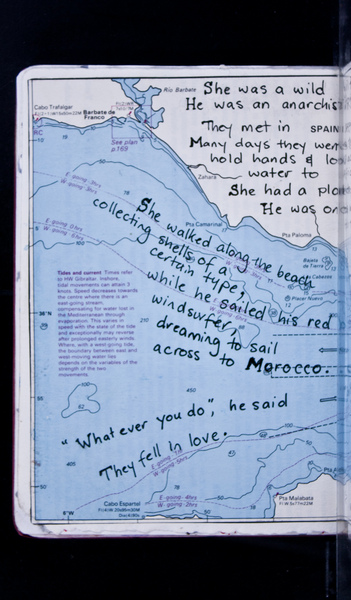 Rio Barbate
She was a wild
He was an anarchis
Cabo Trafalgar
Barbate de
Franco
They met in SPAIN
See plan
p.169
Many days they wen
hold hands & loo
water to
Zahara
She had a plan
He was on
Pta Camarinal
Pta Paloma
She walked along the beach
collecting shells of a
certain type,
while he sailed his red
windsurfer,
dreaming to sail
across to Morocco.
Tides and current Times refer
to HW Gibraltar. Inshore,
tidal movements can attain 3
knots. Speed decreases towards
the centre where there is an
east-going stream,
compensating for water lost in
the Mediterranean through
evaporation. This varies in
speed with the state of the tide
and exceptionally may reverse
after prolonged easterly winds.
Where, with a west-going tide,
the boundary between east and
west-moving water lies
depends on the variables of the
strength of the two
movements.
Placer Nuevo
"What ever you do", he said
They fell in love.
E-going 4hrs
W-going 2hrs
Cabo Espartel
Pta Malabata
Fl.W.5s77m22M